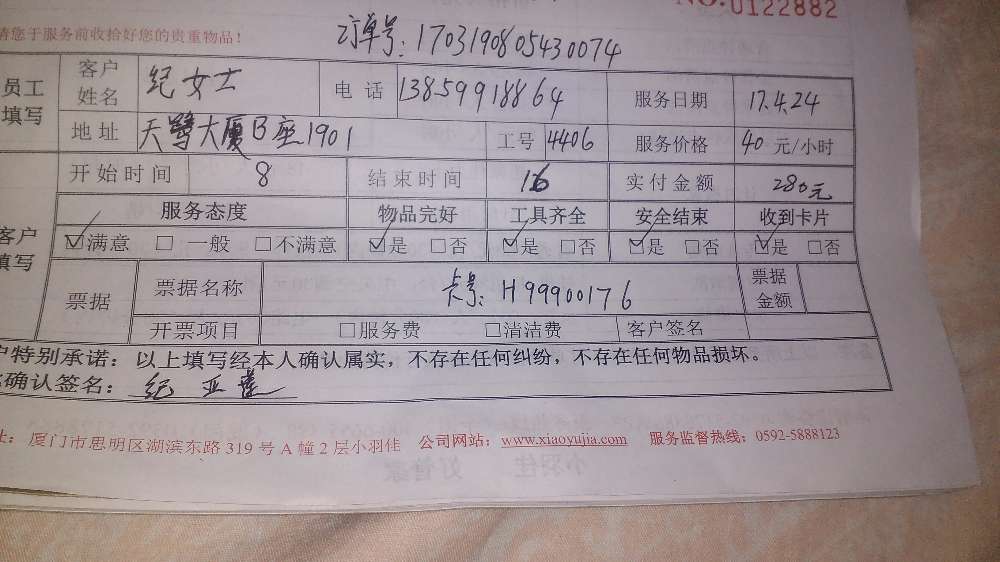 NO.0122882
请您于服务前收拾好您的贵重物品！
订单号：170319080543 0074
员工填写 客户姓名 纪女士 电话 13859918864 服务日期 17.4.24
地址 天鹭大厦B座1901 工号 4406 服务价格 40元/小时
开始时间 8 结束时间 16 实付金额 280元
客户填写 服务态度 物品完好 工具齐全 安全结束 收到卡片
☑满意 □一般 □不满意 ☑是 □否 ☑是 □否 ☑是 □否 ☑是 □否
票据 票据名称 卡号：H99900176 票据金额
开票项目 □服务费 □清洁费 客户签名
户特别承诺：以上填写经本人确认属实，不存在任何纠纷，不存在任何物品损坏。
确认签名：纪亚莲
址：厦门市思明区湖滨东路319号A幢2层小羽佳 公司网站：www.xiaoyujia.com 服务监督热线：0592-5888123